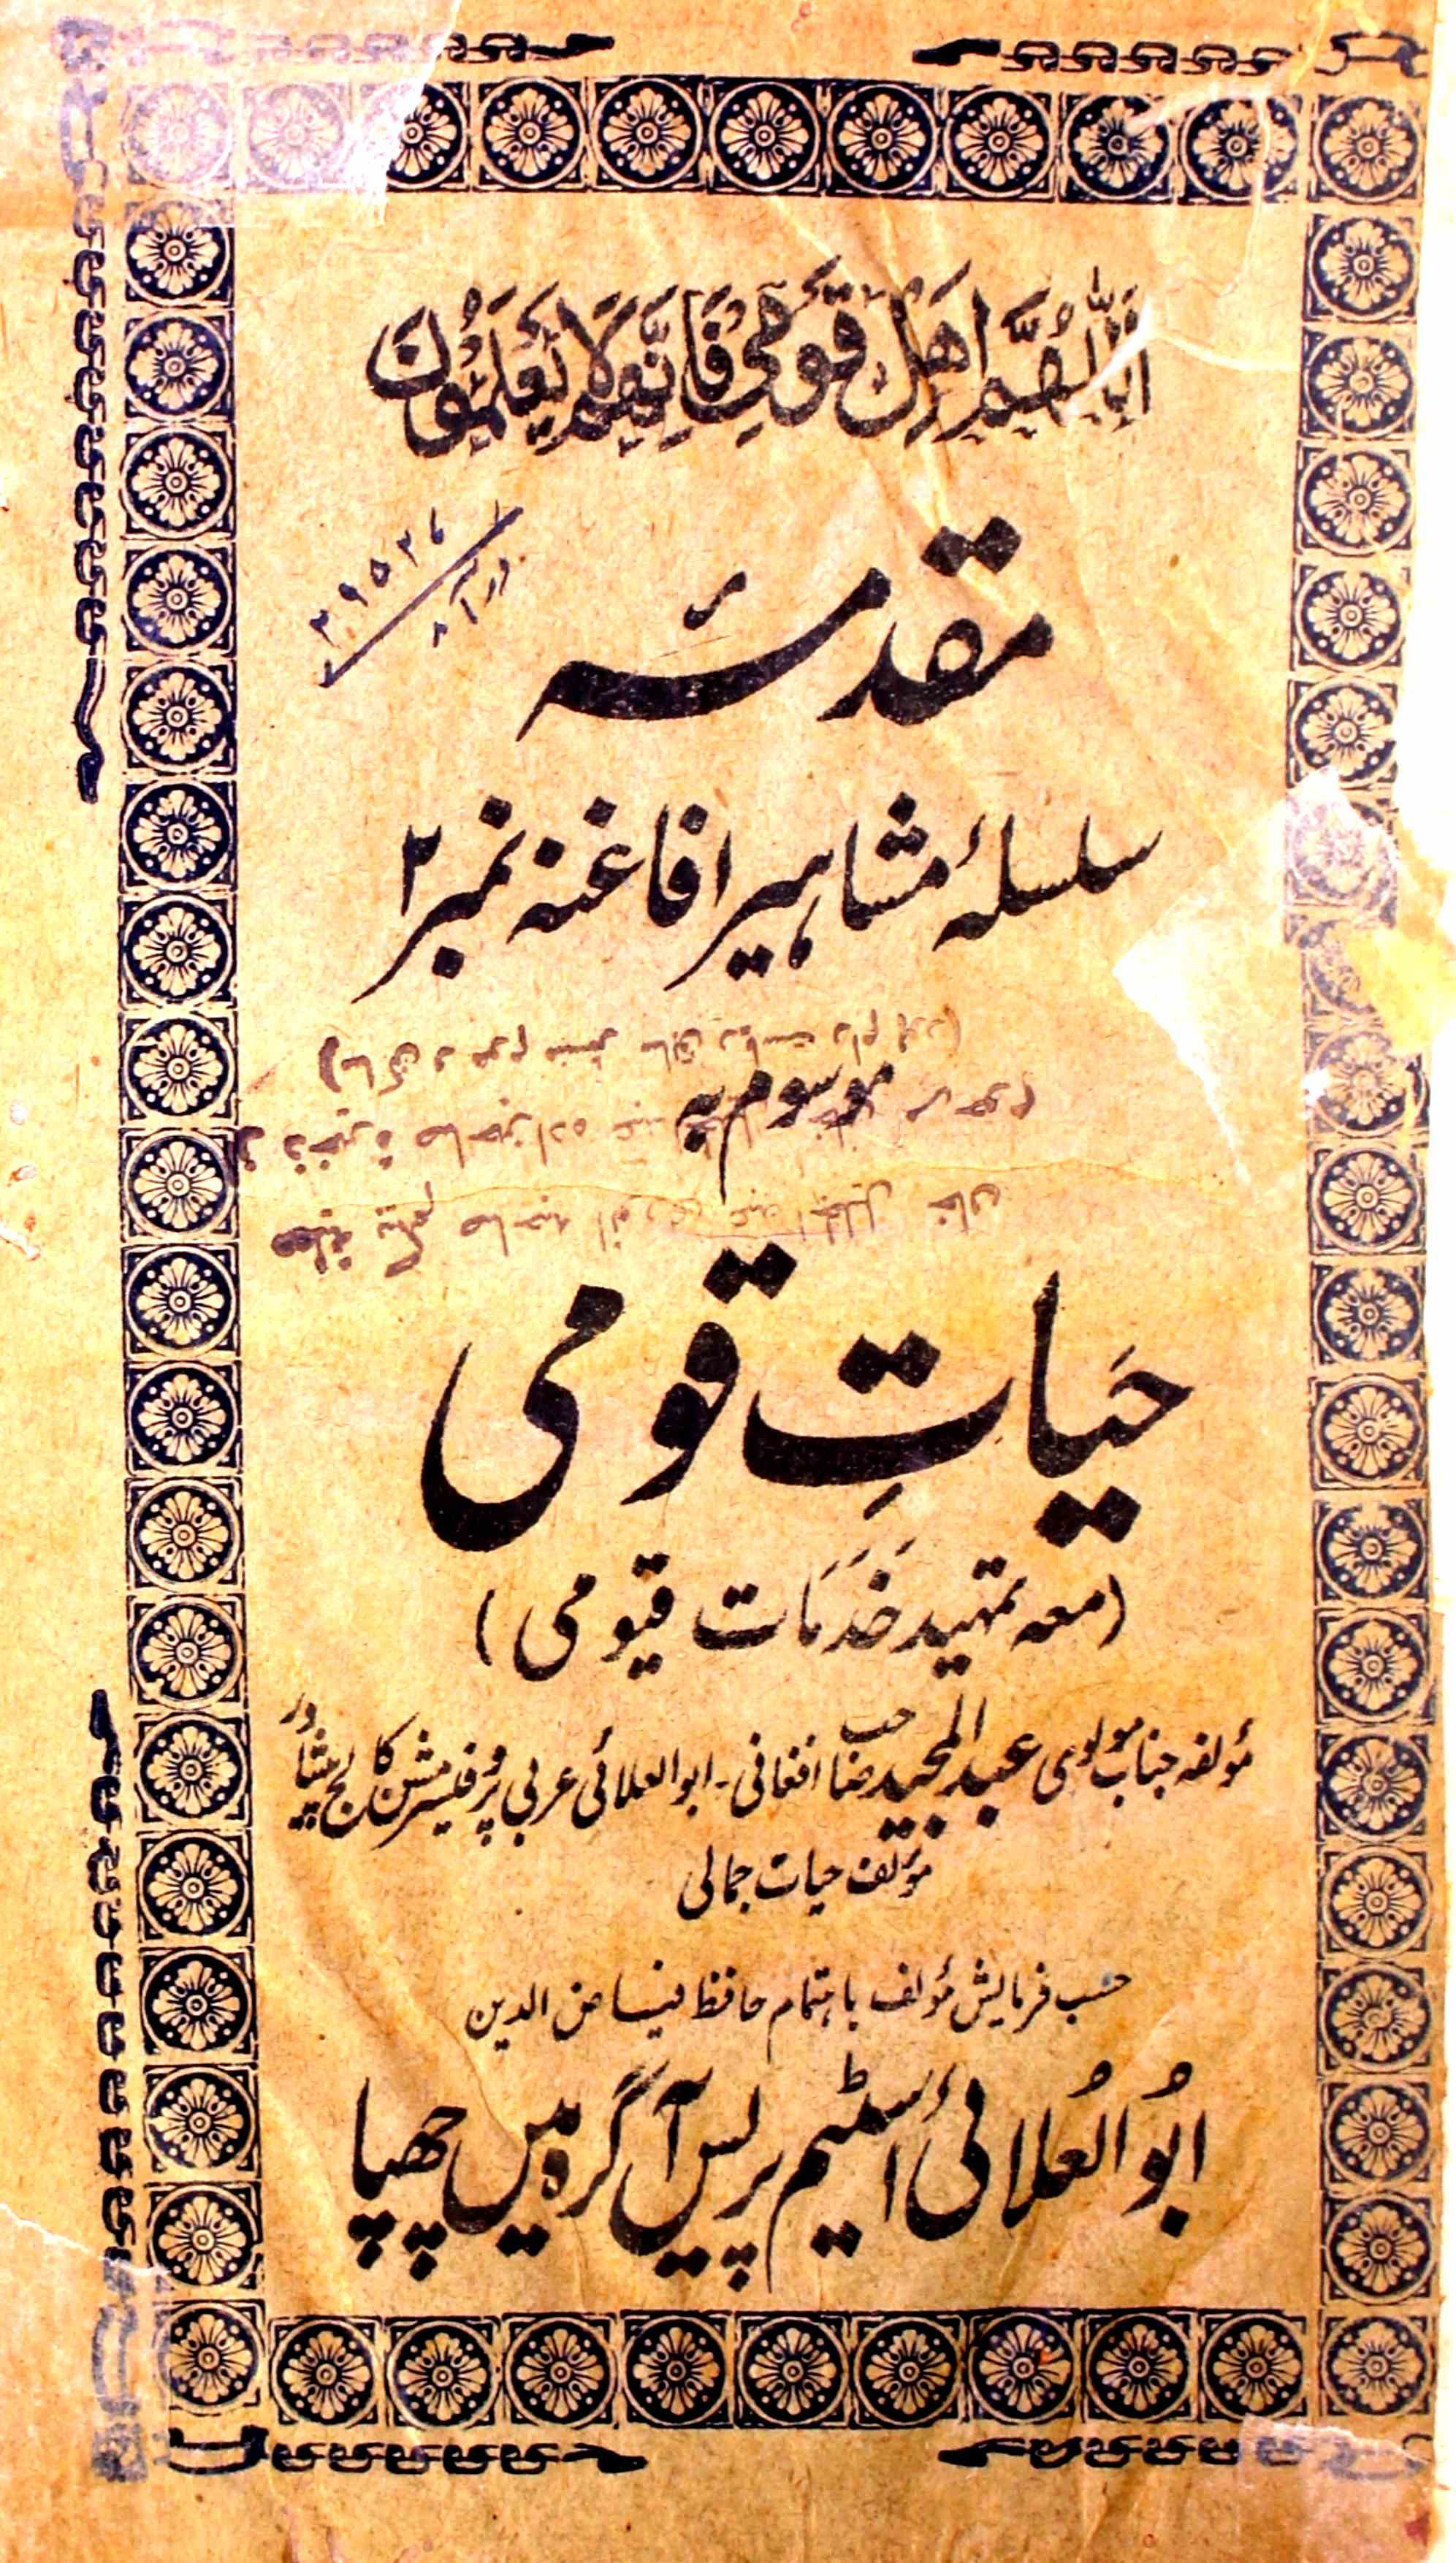 اَللّٰهُمَّ اهْدِ قَوْمِي فَاِنَّهُمْ لَا يَعْلَمُوْنَ
مقدمۂ
سلسلۂ مشاہیر افاغنہ نمبر ۲
موسوم بہ
حَیاتِ قومی
(معہ تمہید خَدَمَات قیومی)
مؤلفہ جناب مولوی عبد المجید صاحب افغانی - ابو العلائی عربی پروفیسر مشن کالج پشاور
مؤلف حیات جمالی
حسب فرمایش مؤلف باہتمام حافظ فیاض الدین
ابُو العُلائی اسٹیم پریس آگرہ میں چھپا